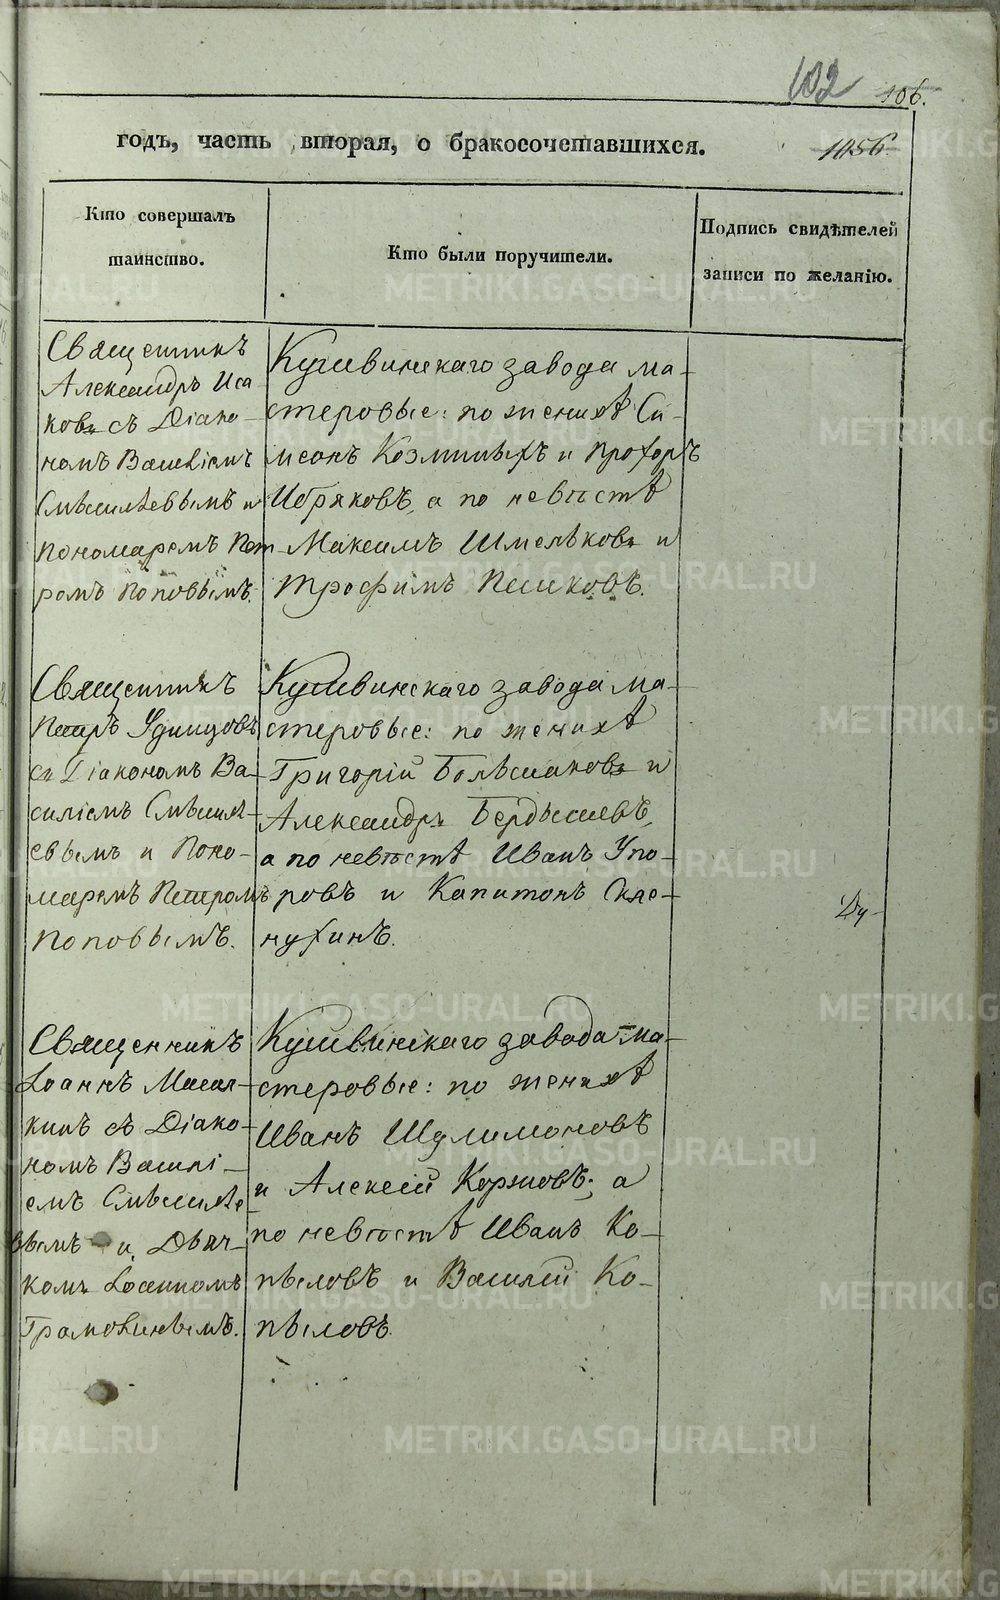 102 106.
годъ, часть вторая, о бракосочетавшихся.
1056
Кто совершалъ
таинство.
Кто были поручители.
Подпись свидѣтелей
записи по желанію.
Священникъ
Александръ Иса-
ковъ съ Діако-
номъ Василіемъ
Смышляевымъ и
Пономаремъ Пет-
ромъ Поповымъ.
Кушвинскаго завода ма-
стеровые: по женихѣ Си-
меонъ Козминыхъ и Прохоръ
Ибряковъ, а по невѣстѣ
Максимъ Шмельковъ и
Трофимъ Пешковъ.
Священникъ
Петръ Удинцовъ
съ Діакономъ Ва-
силіемъ Смышля-
евымъ и Поно-
маремъ Петромъ
Поповымъ.
Кушвинскаго завода ма-
стеровые: по женихѣ
Григорій Большаковъ и
Александръ Бердышевъ,
а по невѣстѣ Иванъ Упо-
ровъ и Капитонъ
Ду-
Священникъ
Іоаннъ
съ Діако-
номъ Василі-
емъ Смышляе-
вымъ и Дьяч-
комъ Іоанномъ
Грамолинымъ.
Кушвинскаго завода ма-
стеровые: по женихѣ
Иванъ
и Алексѣй Коршовъ; а
по невѣстѣ Иванъ Ко-
пыловъ и Василій Ко-
пыловъ.
METRIKI.GASO-URAL.RU